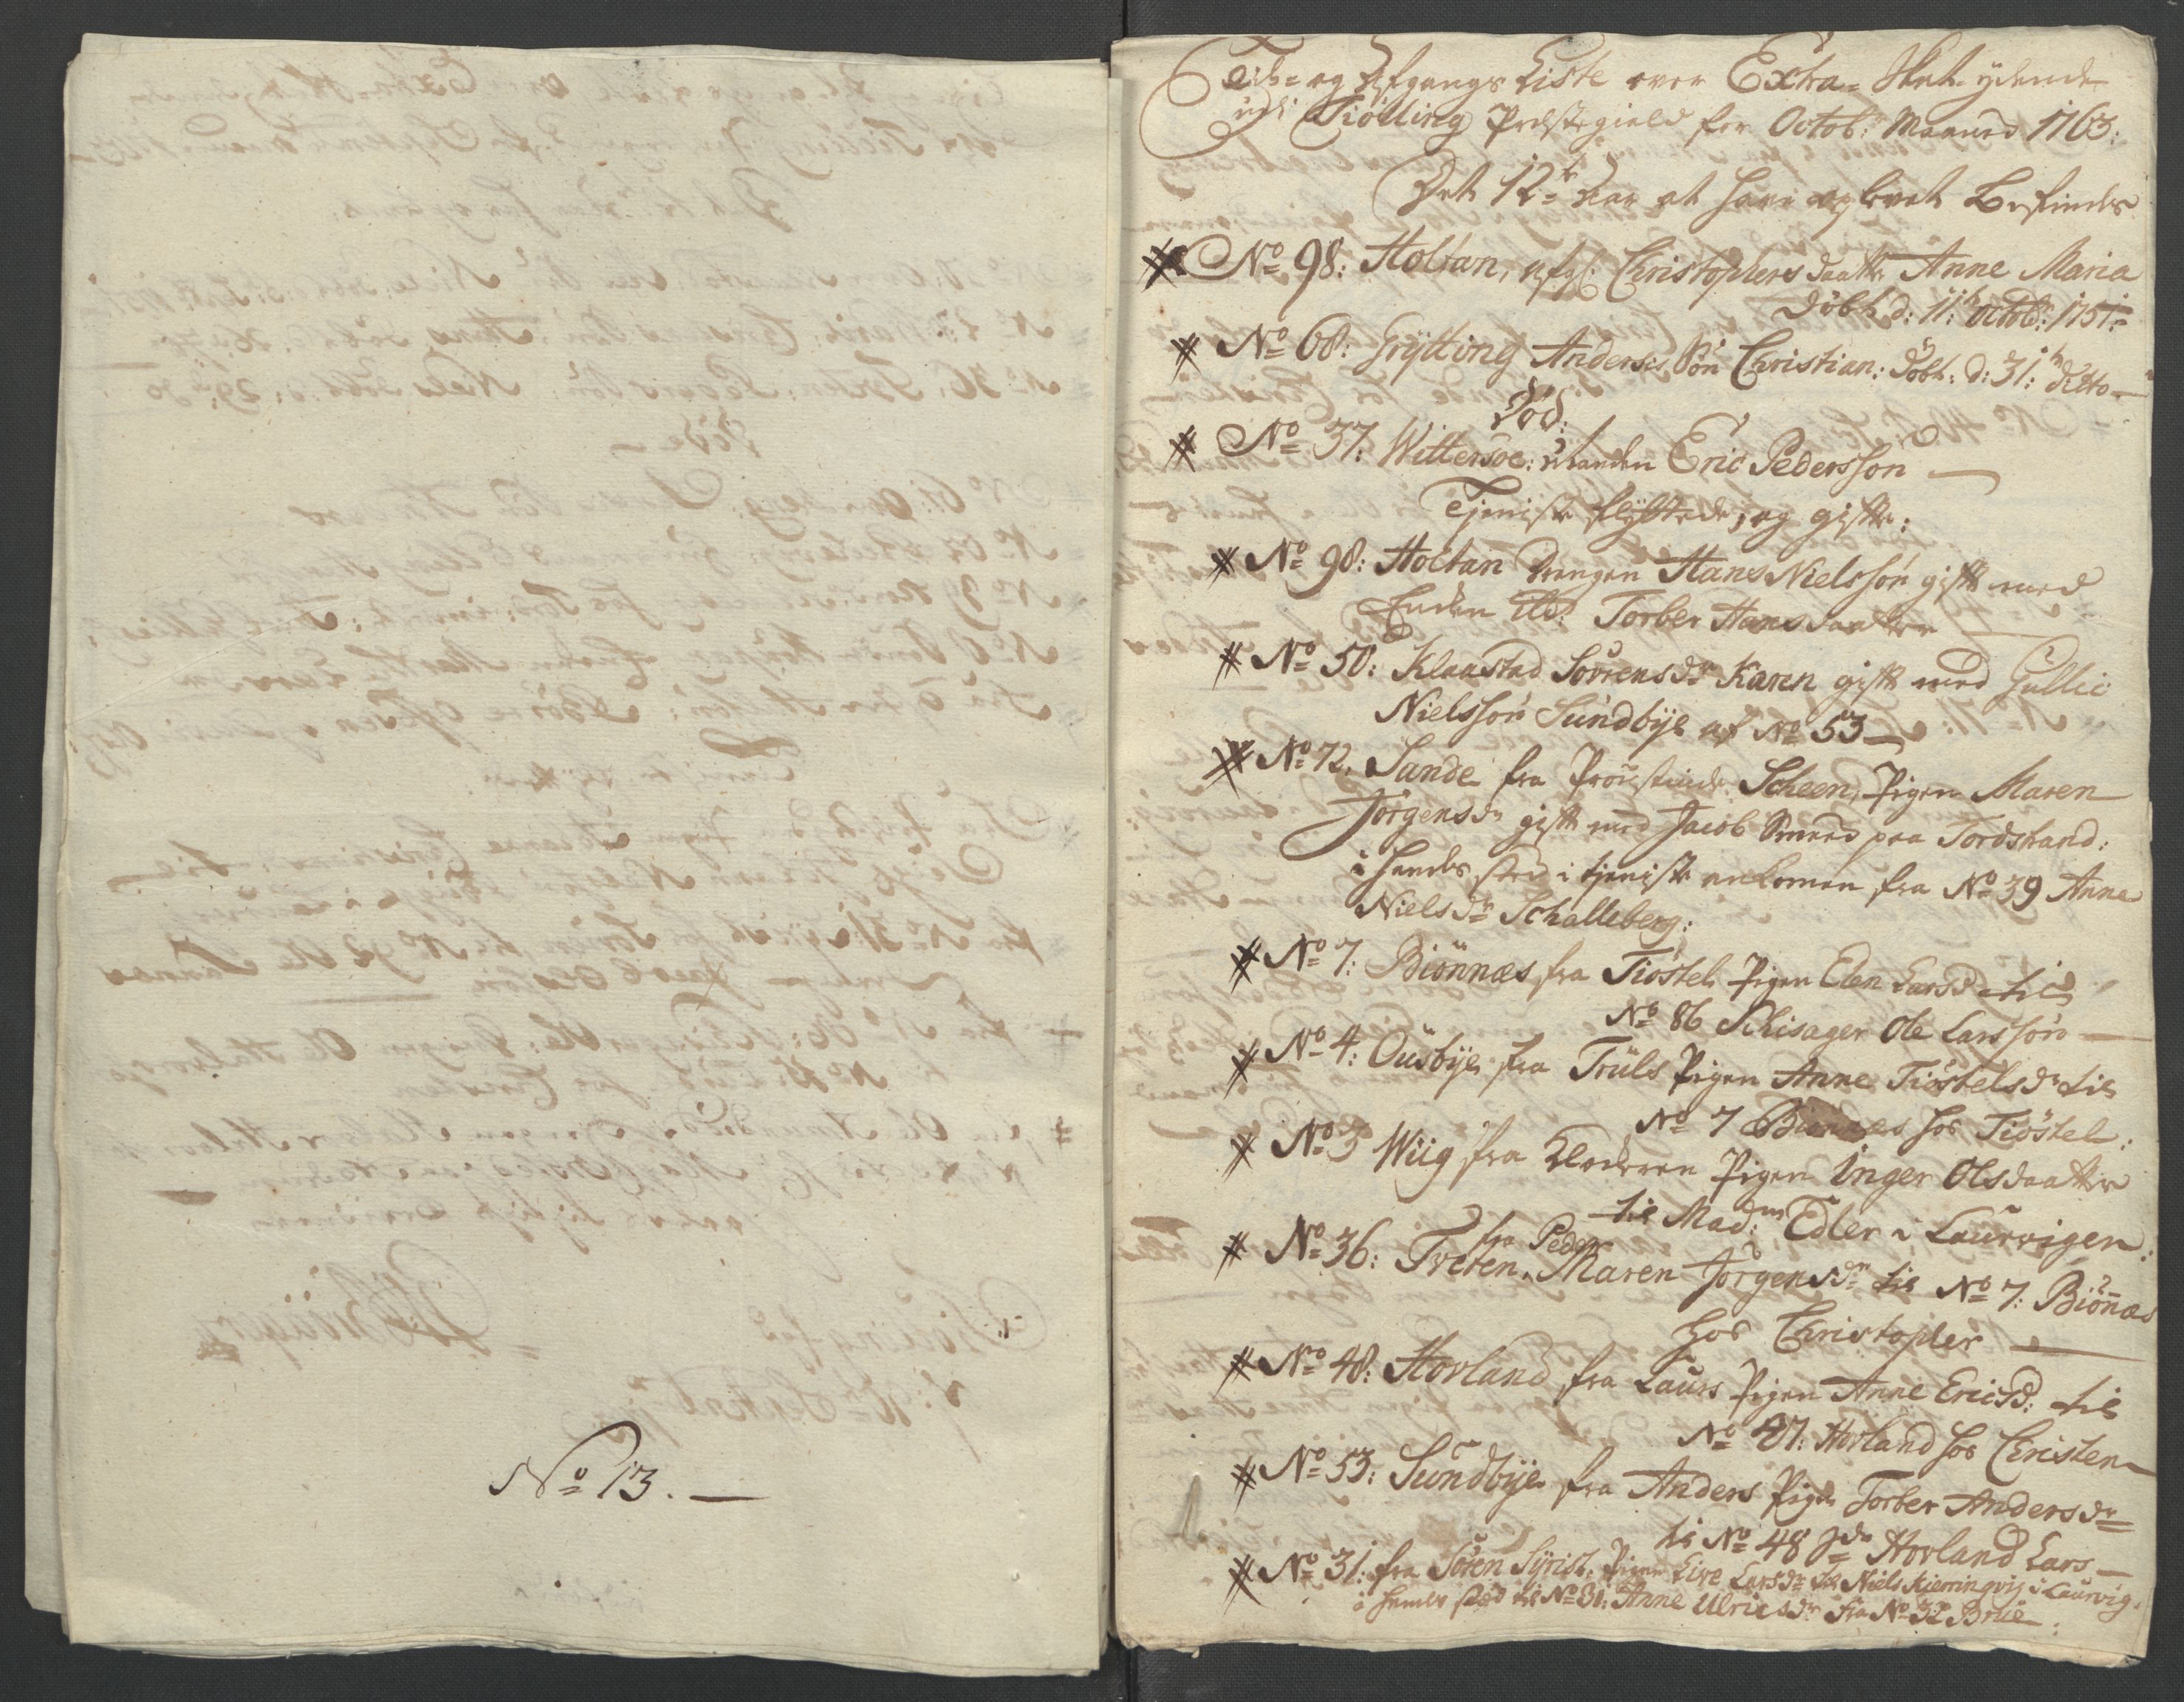 No 13. —
Til- og Afgangs Liste over Extra- Skat-ydende
udi Tiölling Præstegield for Octob: Maaned 1763:
Det 12te Aar at have oplevet Befindes
No 98: Holtan, Christophers daatter Anne Maria
döbt d: 11te Octob: 1751:
No 68: Grÿtting Anderses Sön Christian: döbt: d: 31: ditto —
Död:
No 37: Wittersöe: Manden Eric Pedersson —
Tjeniste flÿttede, og gifte:
No 98: Holtan drengen Hans Nielssön gift med
Enken Torber Hans daatter
No 50: Klaastad Sörrensdr Karen gift med Gullic
Nielssön Sundbÿe af No 53 —
No 72, Sande fra Proustinde Scheen, Pigen Maren
Jörgensdr gift med Jacob Smed paa Tordstrand:
i hendes sted i tjeniste ankomen fra No 39 Anne
Nielsdr Schalleberg:
No 7: Biönnæs fra Tiöstel Pigen Elen Larsd til
No 86 Schisager Ole Larssön —
No 4: Ousbÿe fra Truls Pigen Anne Tiöstelsdr til
No 7 Biönnes hos Tiöstel:
No 3 Wiig fra Pigen Inger Olsdaatter
til Madm: Edler i Laurvigen:
fra Peder
No 36: Tveten, Maren Jörgensdr til No 7: Biönnæs
hos Christopler —
No 48: Hovland fra Laurs Pigen Anne Ericsd: til
No 47: Hovland hos Christen —
No 53: Sundbÿe fra Anders Pigen Torber Andersdr
til No 48 Hovland Lars —
No 31: fra Sören Sÿrist, Pigen Live Larsdr til Niels Kierringvig i Laurvig.
i hendes sted til No 31: Anne Ulricsdr fra No 32 Brue —: